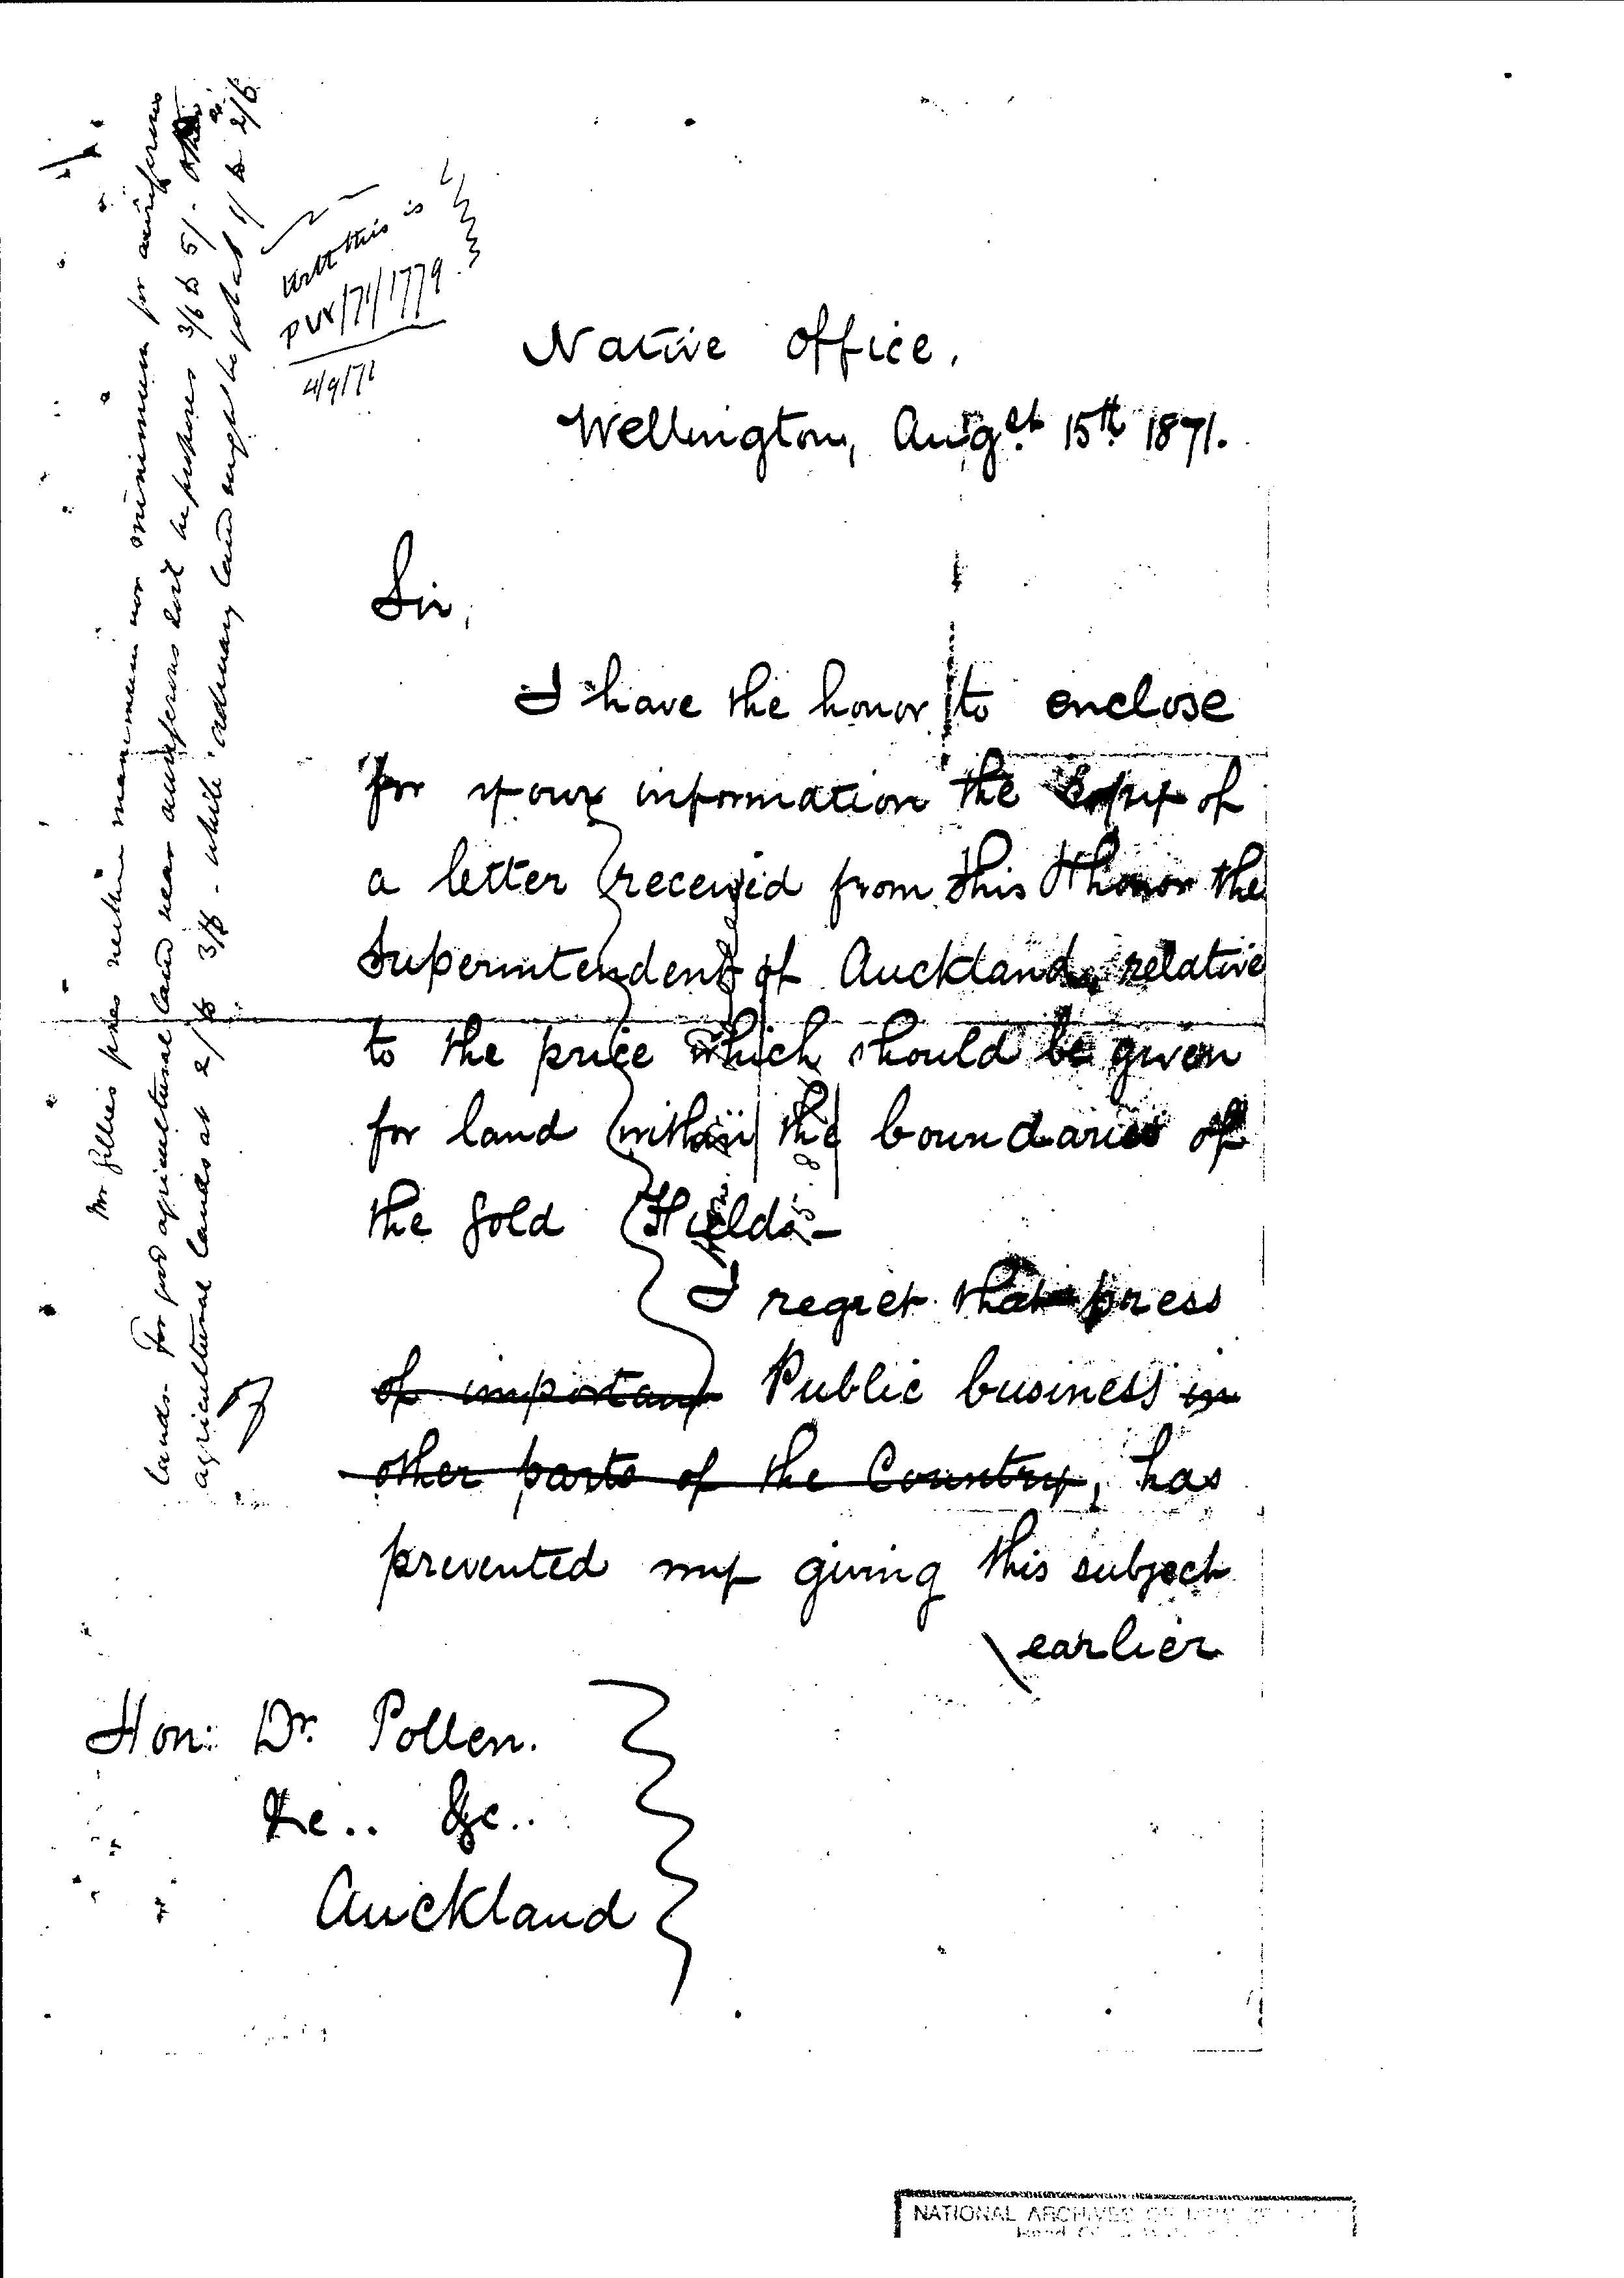 Native Office,
Wellington, Augst 15th 1871.
Sir,
I have the honor to enclose
for your information the Copy of
a letter received from His Honor the
Superintendent of Auckland, relative
to the price which should be given
for land within the boundaries of
the Gold Fields –
I regret that press
of important Public business in
other parts of the Country, has
prevented my giving this subject
earlier
Hon: Dr. Pollen.
&c.. &c..
Auckland
Mr Gillies gives neither maximum nor minimum for auriferous
lands. For good agricultural land near auriferous dist he proposes 3/6 to 5/. other
agricultural lands at 2/6 3/6 - while ordinary land might be got at 1/ to 2/6
with this is
71/1779
4/9/71
NATIONAL ARCHIVES OF NEW